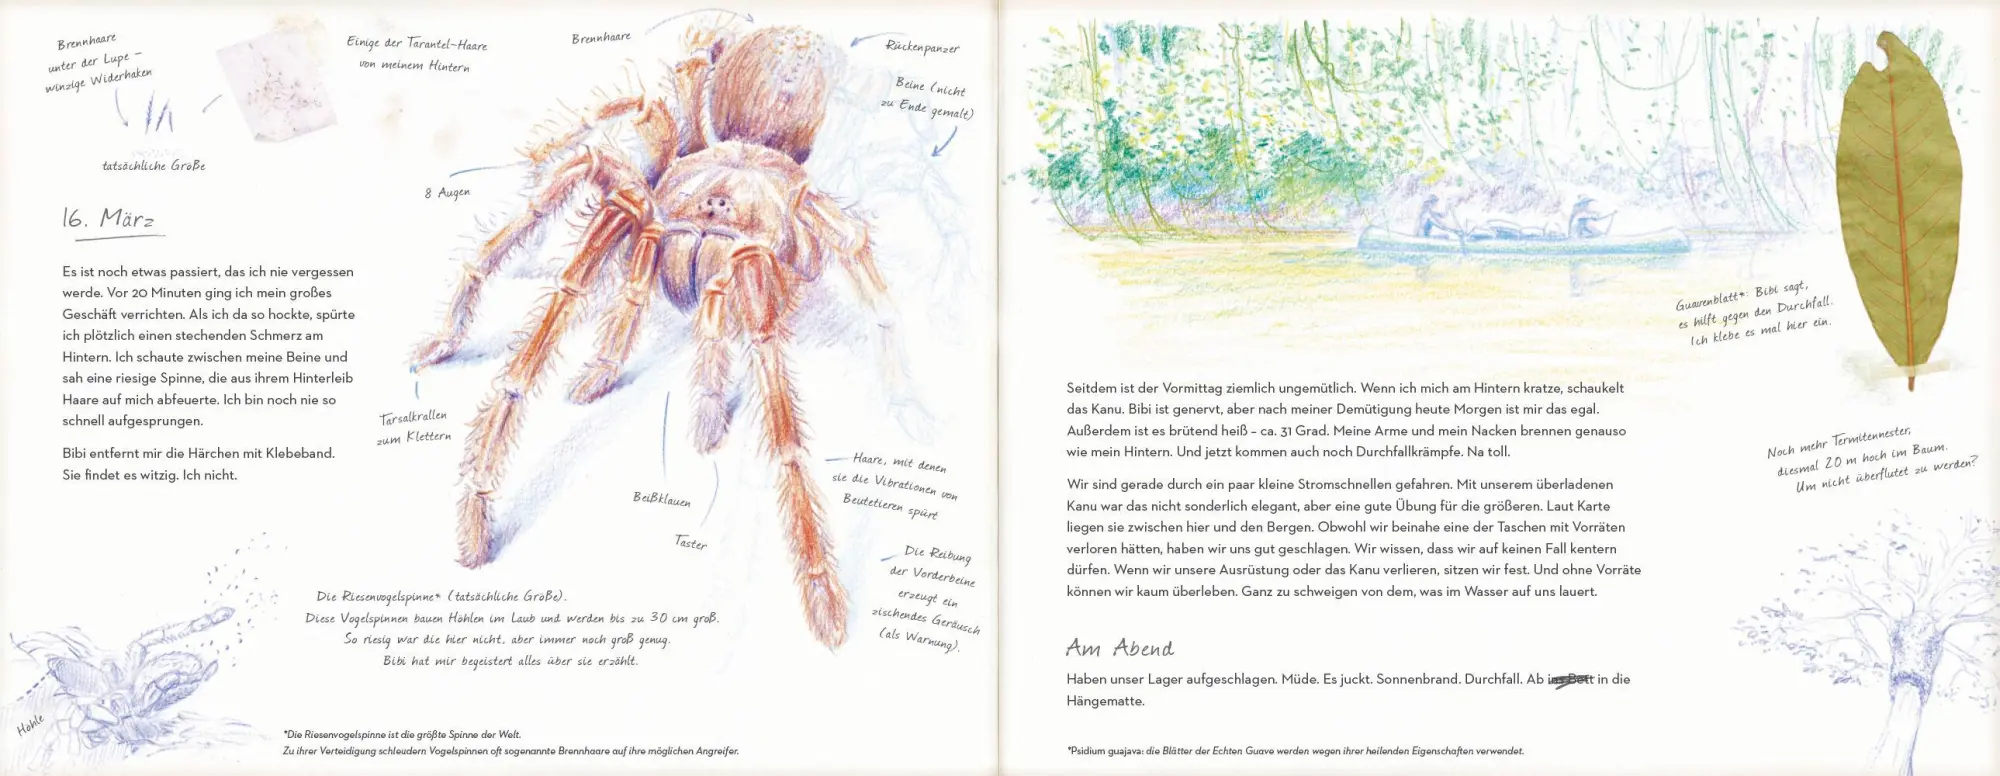 Brennhaare
unter der Lupe –
winzige Widerhaken
tatsächliche Größe
Einige der Tarantel-Haare
von meinem Hintern
Brennhaare
Rückenpanzer
Beine (nicht
zu Ende gemalt)
8 Augen
16. März
Es ist noch etwas passiert, das ich nie vergessen
werde. Vor 20 Minuten ging ich mein großes
Geschäft verrichten. Als ich da so hockte, spürte
ich plötzlich einen stechenden Schmerz am
Hintern. Ich schaute zwischen meine Beine und
sah eine riesige Spinne, die aus ihrem Hinterleib
Haare auf mich abfeuerte. Ich bin noch nie so
schnell aufgesprungen.
Bibi entfernt mir die Härchen mit Klebeband.
Sie findet es witzig. Ich nicht.
Tarsalkrallen
zum Klettern
Beißklauen
Taster
Haare, mit denen
sie die Vibrationen von
Beutetieren spürt
Die Reibung
der Vorderbeine
erzeugt ein
zischendes Geräusch
(als Warnung).
Die Riesenvogelspinne* (tatsächliche Größe).
Diese Vogelspinnen bauen Höhlen im Laub und werden bis zu 30 cm groß.
So riesig war die hier nicht, aber immer noch groß genug.
Bibi hat mir begeistert alles über sie erzählt.
Höhle
*Die Riesenvogelspinne ist die größte Spinne der Welt.
Zu ihrer Verteidigung schleudern Vogelspinnen oft sogenannte Brennhaare auf ihre möglichen Angreifer.
Guavenblatt*: Bibi sagt,
es hilft gegen den Durchfall.
Ich klebe es mal hier ein.
Seitdem ist der Vormittag ziemlich ungemütlich. Wenn ich mich am Hintern kratze, schaukelt
das Kanu. Bibi ist genervt, aber nach meiner Demütigung heute Morgen ist mir das egal.
Außerdem ist es brütend heiß – ca. 31 Grad. Meine Arme und mein Nacken brennen genauso
wie mein Hintern. Und jetzt kommen auch noch Durchfallkrämpfe. Na toll.
Wir sind gerade durch ein paar kleine Stromschnellen gefahren. Mit unserem überladenen
Kanu war das nicht sonderlich elegant, aber eine gute Übung für die größeren. Laut Karte
liegen sie zwischen hier und den Bergen. Obwohl wir beinahe eine der Taschen mit Vorräten
verloren hätten, haben wir uns gut geschlagen. Wir wissen, dass wir auf keinen Fall kentern
dürfen. Wenn wir unsere Ausrüstung oder das Kanu verlieren, sitzen wir fest. Und ohne Vorräte
können wir kaum überleben. Ganz zu schweigen von dem, was im Wasser auf uns lauert.
Noch mehr Termitennester,
diesmal 20 m hoch im Baum.
Um nicht überflutet zu werden?
Am Abend
Haben unser Lager aufgeschlagen. Müde. Es juckt. Sonnenbrand. Durchfall. Ab ins Bett in die
Hängematte.
*Psidium guajava: die Blätter der Echten Guave werden wegen ihrer heilenden Eigenschaften verwendet.